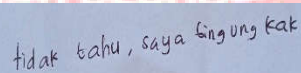 tidak tahu, saya bingung kak